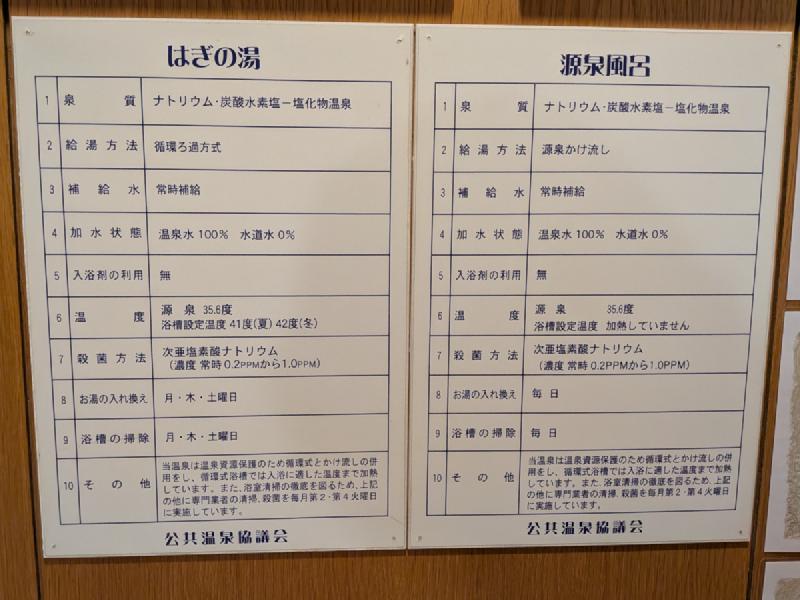 はぎの湯
1 泉質 ナトリウム・炭酸水素塩－塩化物温泉
2 給湯方法 循環ろ過方式
3 補給水 常時補給
4 加水状態 温泉水100% 水道水0%
5 入浴剤の利用 無
6 温度 源泉 35.6度
浴槽設定温度 41度(夏) 42度(冬)
7 殺菌方法 次亜塩素酸ナトリウム
（濃度 常時 0.2PPMから1.0PPM）
8 お湯の入れ換え 月・木・土曜日
9 浴槽の掃除 月・木・土曜日
10 その他 当温泉は温泉資源保護のため循環式とかけ流しの併
用をし、循環式浴槽では入浴に適した温度まで加熱
しています。また、浴室清掃の徹底を図るため、上記
の他に専門業者の清掃、殺菌を毎月第2・第4火曜日
に実施しています。
公共温泉協議会
源泉風呂
1 泉質 ナトリウム・炭酸水素塩－塩化物温泉
2 給湯方法 源泉かけ流し
3 補給水 常時補給
4 加水状態 温泉水100% 水道水0%
5 入浴剤の利用 無
6 温度 源泉 35.6度
浴槽設定温度 加熱していません
7 殺菌方法 次亜塩素酸ナトリウム
（濃度 常時 0.2PPMから1.0PPM）
8 お湯の入れ換え 毎日
9 浴槽の掃除 毎日
10 その他 当温泉は温泉資源保護のため循環式とかけ流しの併
用をし、循環式浴槽では入浴に適した温度まで加熱
しています。また、浴室清掃の徹底を図るため、上記
の他に専門業者の清掃、殺菌を毎月第2・第4火曜日に
実施しています。
公共温泉協議会